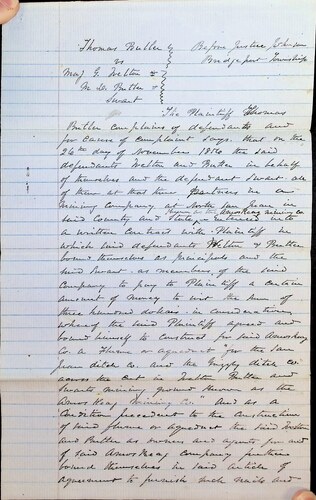 Thomas Butler } Before Justice Johnson
vs } Bridgeport Township
Maj G. Welton
N. D. Butler
Swart
The Plaintiff Thomas
Butler complains of defendants and
for cause of complaint says: that on the
26th day of November 1856 the said
defendants Welton and Butler in behalf
of themselves and the defendant Swart all
of them at that time partners in a
mining company at North San Juan in
said County and State Known as the Amoskeag mining co. entered into
a written contract with Plaintiff in
which said defendants Welton & Butler
bound themselves as principals and the
said Swart as members of the said
Company to pay to Plaintiff a certain
amount of money to wit the sum of
three hundred dollars in consideration
whereof the said Plaintiff agreed and
bound himself to construct for said Amoskeag
Co. a Flume or aqueduct for the San
Juan ditch co. and the Grizzly ditch co.
across the cut in Welton Butler and
Swarts mining ground known as the
Amoskeag Mining Co." And as a
Condition precedent to the construction
of said flume or aqueduct the said Welton
and Butler as owners and agents for and
of said Amoskeag company further
bound themselves in said article of
agreement to furnish such nails and